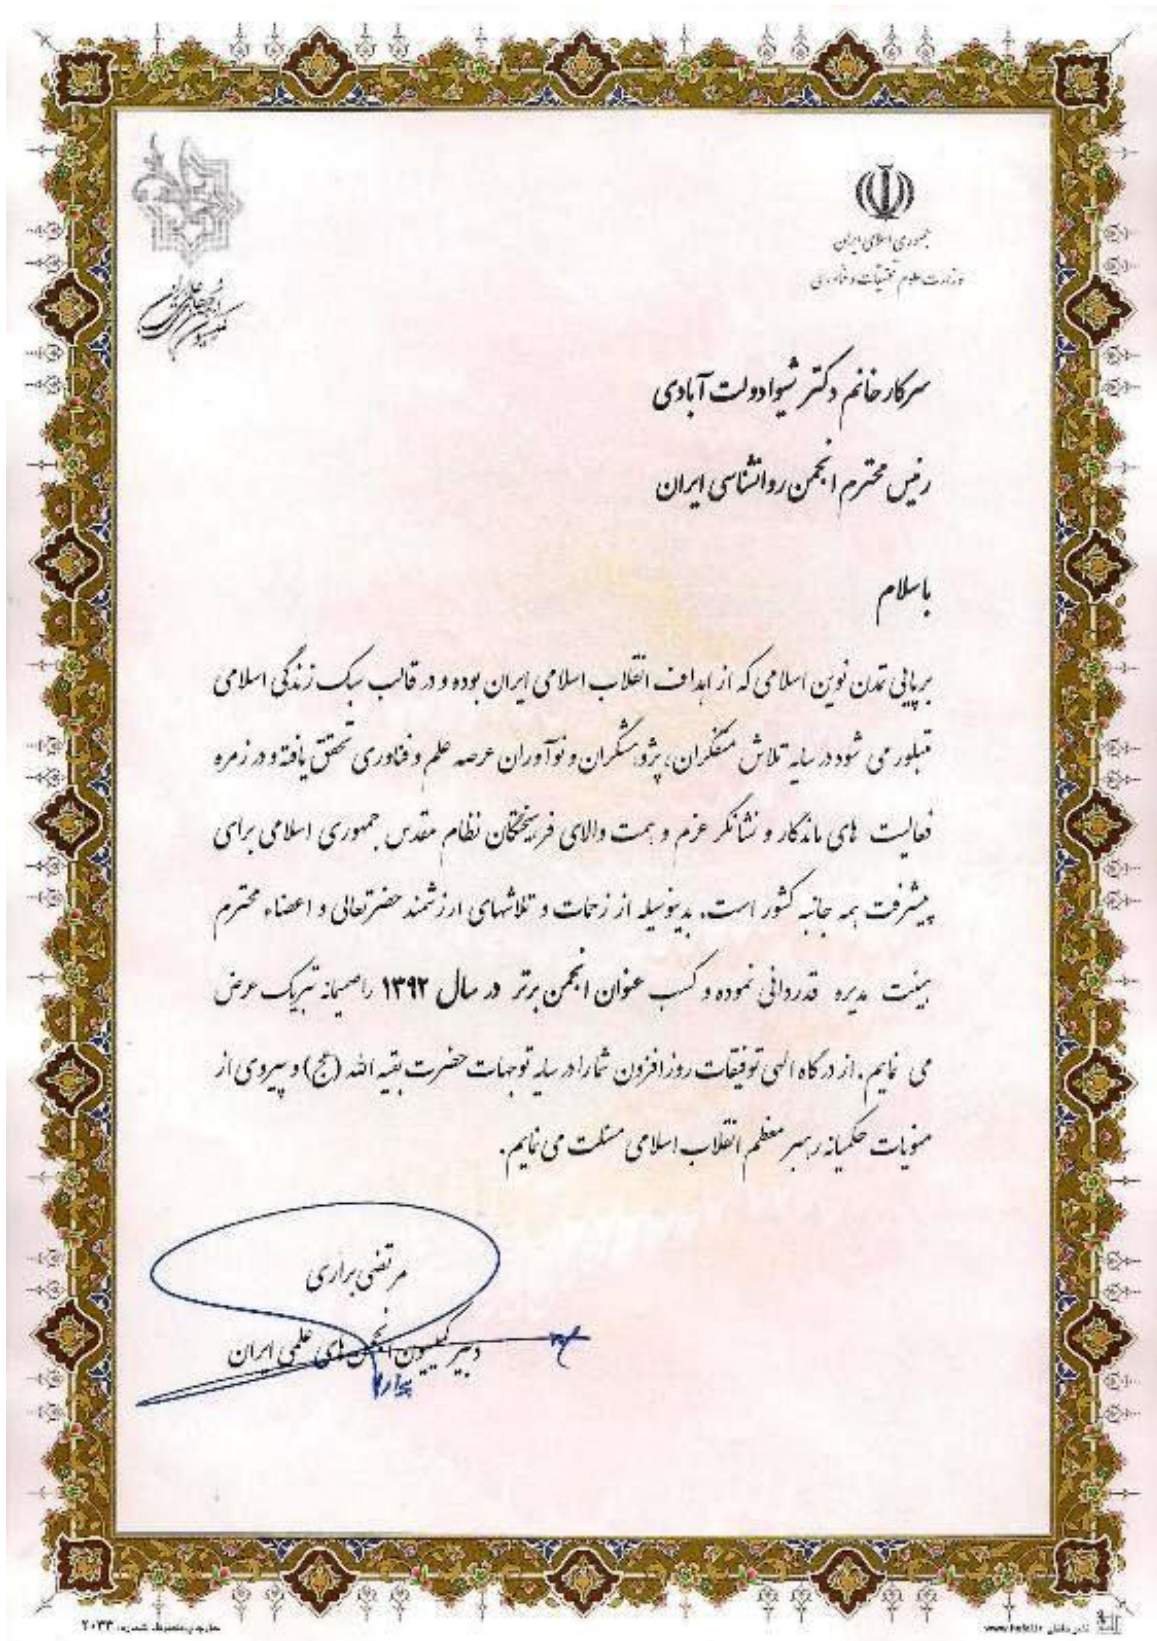 جمهوری اسلامی ایران
وزارت علوم تحقیقات و فناوری
کمیسیون انجمنهای علمی ایران
سرکار خانم دکتر شیوا دولت آبادی
رئیس محترم انجمن روانشناسی ایران
با سلام
برپایی تمدن نوین اسلامی که از اهداف انقلاب اسلامی ایران بوده و در قالب سبک زندگی اسلامی
متبلور می شود در سایه تلاش متفکران، پژوهشگران و نوآوران عرصه علم و فناوری تحقق یافته و در زمره
فعالیت های ماندگار و نشانگر عزم و همت والای فریختگان نظام مقدس جمهوری اسلامی برای
پیشرفت همه جانبه کشور است. بدینوسیله از زحمات و تلاشهای ارزشمند حضرتعالی و اعضاء محترم
هیئت مدیره قدردانی نموده و کسب عنوان انجمن برتر در سال ۱۳۹۲ را صمیمانه تبریک عرض
می نمایم. از درگاه الهی توفیقات روزافزون شما را در سایه توجهات حضرت بقیه الله (عج) و پیروی از
منویات حکیمانه رهبر معظم انقلاب اسلامی مسئلت می نمایم.
مرتضی براری
دبیر کمیسیون انجمن های علمی ایران
شماره: ۲۰۳۳